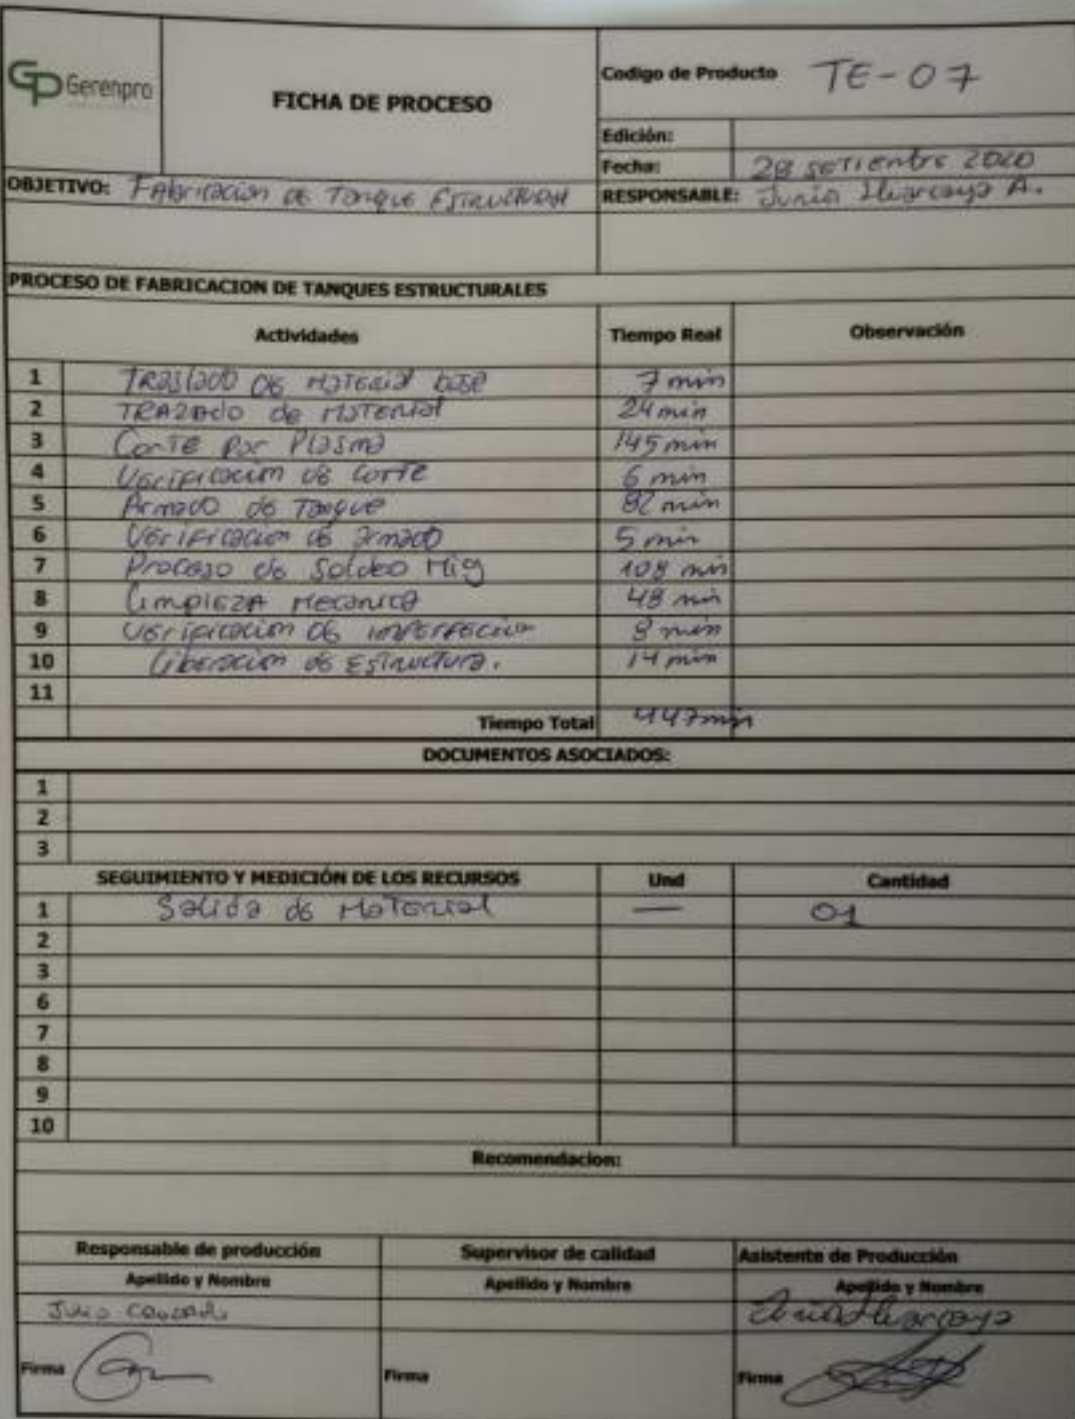 GP Gerenpro
FICHA DE PROCESO
Codigo de Producto TE-07
Edición:
Fecha: 28 setiembre 2020
OBJETIVO: Fabricación de Tanque Estructural
RESPONSABLE: Junior Huarcaya A.
PROCESO DE FABRICACION DE TANQUES ESTRUCTURALES
Actividades Tiempo Real Observación
1 Traslado de Material base 7 min
2 TRAZADO de Material 24 min
3 Corte por Plasma 145 min
4 Verificación de corte 6 min
5 Armado de Tanque 82 min
6 Verificación de armado 5 min
7 Proceso de Soldeo Mig 108 min
8 Limpieza Mecanica 48 min
9 Verificación de imperfección 8 min
10 Liberación de Estructura. 14 min
11
Tiempo Total 447min
DOCUMENTOS ASOCIADOS:
1
2
3
SEGUIMIENTO Y MEDICIÓN DE LOS RECURSOS Und Cantidad
1 Salida de Material — 01
2
3
6
7
8
9
10
Recomendacion:
Responsable de producción Supervisor de calidad Asistente de Producción
Apellido y Nombre Apellido y Nombre Apellido y Nombre
Julio Huarcaya
Firma Firma Firma